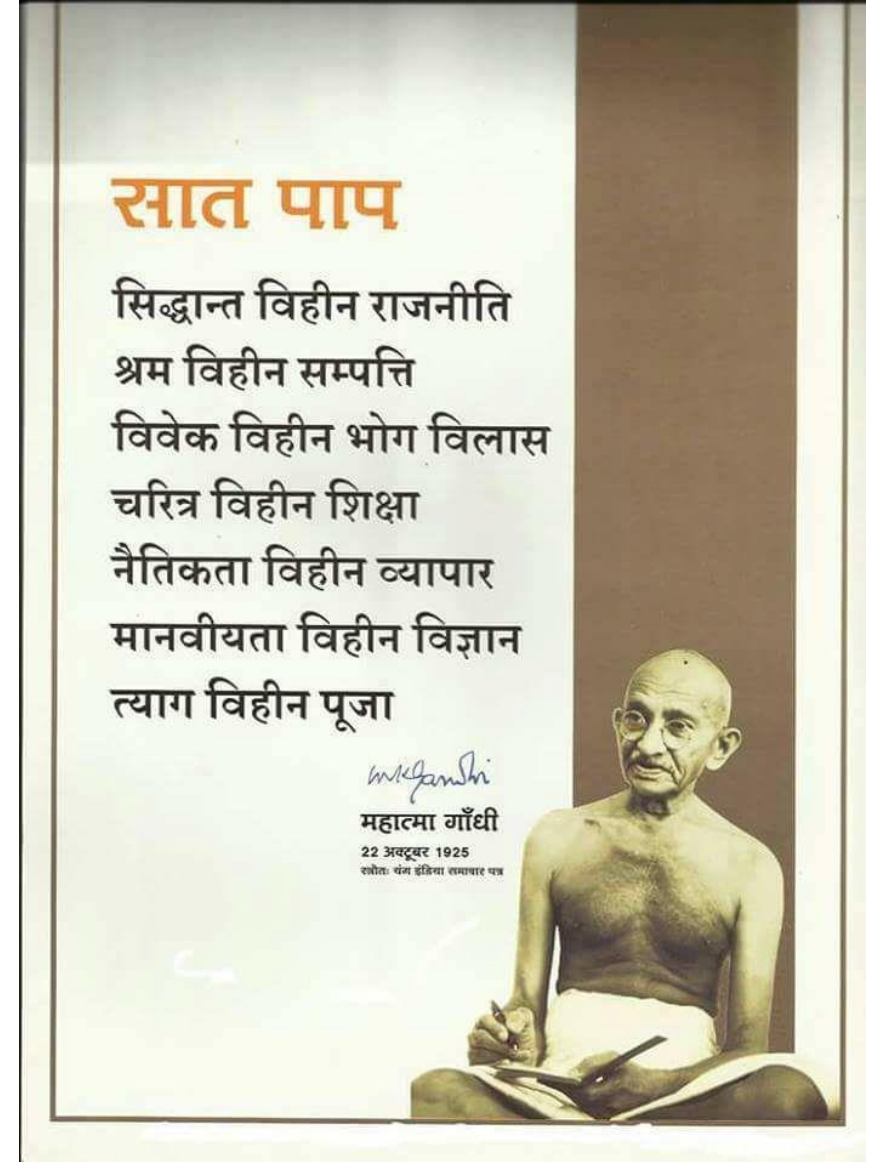 सात पाप
सिद्धान्त विहीन राजनीति
श्रम विहीन सम्पत्ति
विवेक विहीन भोग विलास
चरित्र विहीन शिक्षा
नैतिकता विहीन व्यापार
मानवीयता विहीन विज्ञान
त्याग विहीन पूजा
mkgandhi
महात्मा गाँधी
22 अक्टूबर 1925
स्त्रोतः यंग इंडिया समाचार पत्र